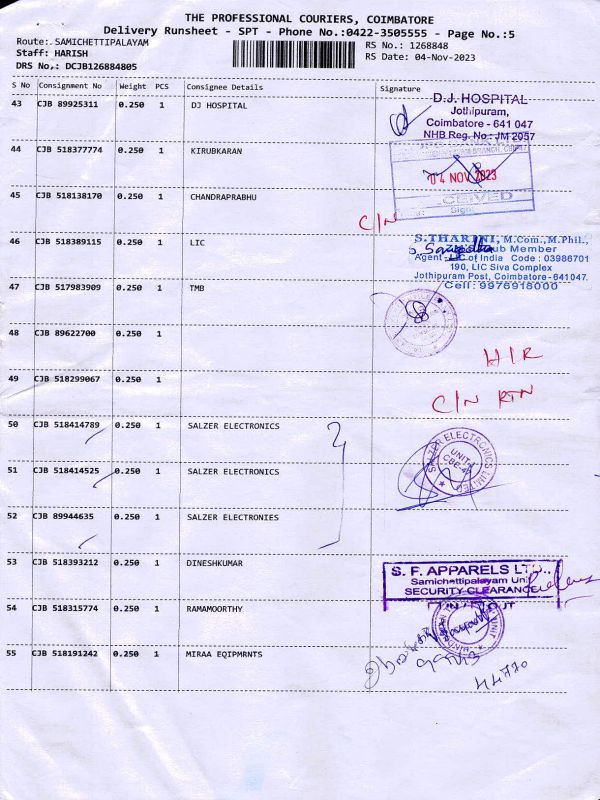 THE PROFESSIONAL COURIERS, COIMBATORE
Delivery Runsheet - SPT - Phone No.:0422-3505555 - Page No.:5
Route: SAMICHETTIPALAYAM
RS No.: 1268848
Staff: HARISH
RS Date: 04-Nov-2023
DRS No,: DCJB126884805
S No Consignment No Weight PCS Consignee Details Signature
43 CJB 89925311 0.250 1 DJ HOSPITAL
D.J. HOSPITAL
Jothipuram,
Coimbatore - 641 047
NHB Reg. No.: JM 2057
44 CJB 518377774 0.250 1 KIRUBKARAN
04 NOV 2023
45 CJB 518138170 0.250 1 CHANDRAPRABHU
CEIVED
Sign:
C/N
46 CJB 518389115 0.250 1 LIC
S.THARINI, M.Com., M.Phil.,
Club Member
Agent - LIC of India Code : 03986701
190, LIC Siva Complex
Jothipuram Post, Coimbatore - 641047.
Cell : 9976918000
47 CJB 517983909 0.250 1 TMB
48 CJB 89622700 0.250 1
H/R
49 CJB 518299067 0.250 1
C/N RTN
50 CJB 518414789 0.250 1 SALZER ELECTRONICS
SALZER ELECTRONICS LIMITED
UNIT-
CBE-47
51 CJB 518414525 0.250 1 SALZER ELECTRONICS
52 CJB 89944635 0.250 1 SALZER ELECTRONIES
53 CJB 518393212 0.250 1 DINESHKUMAR
S. F. APPARELS LTD.,
Samichettipalayam Unit
SECURITY CLEARANCE
54 CJB 518315774 0.250 1 RAMAMOORTHY
55 CJB 518191242 0.250 1 MIRAA EQIPMRNTS
44770